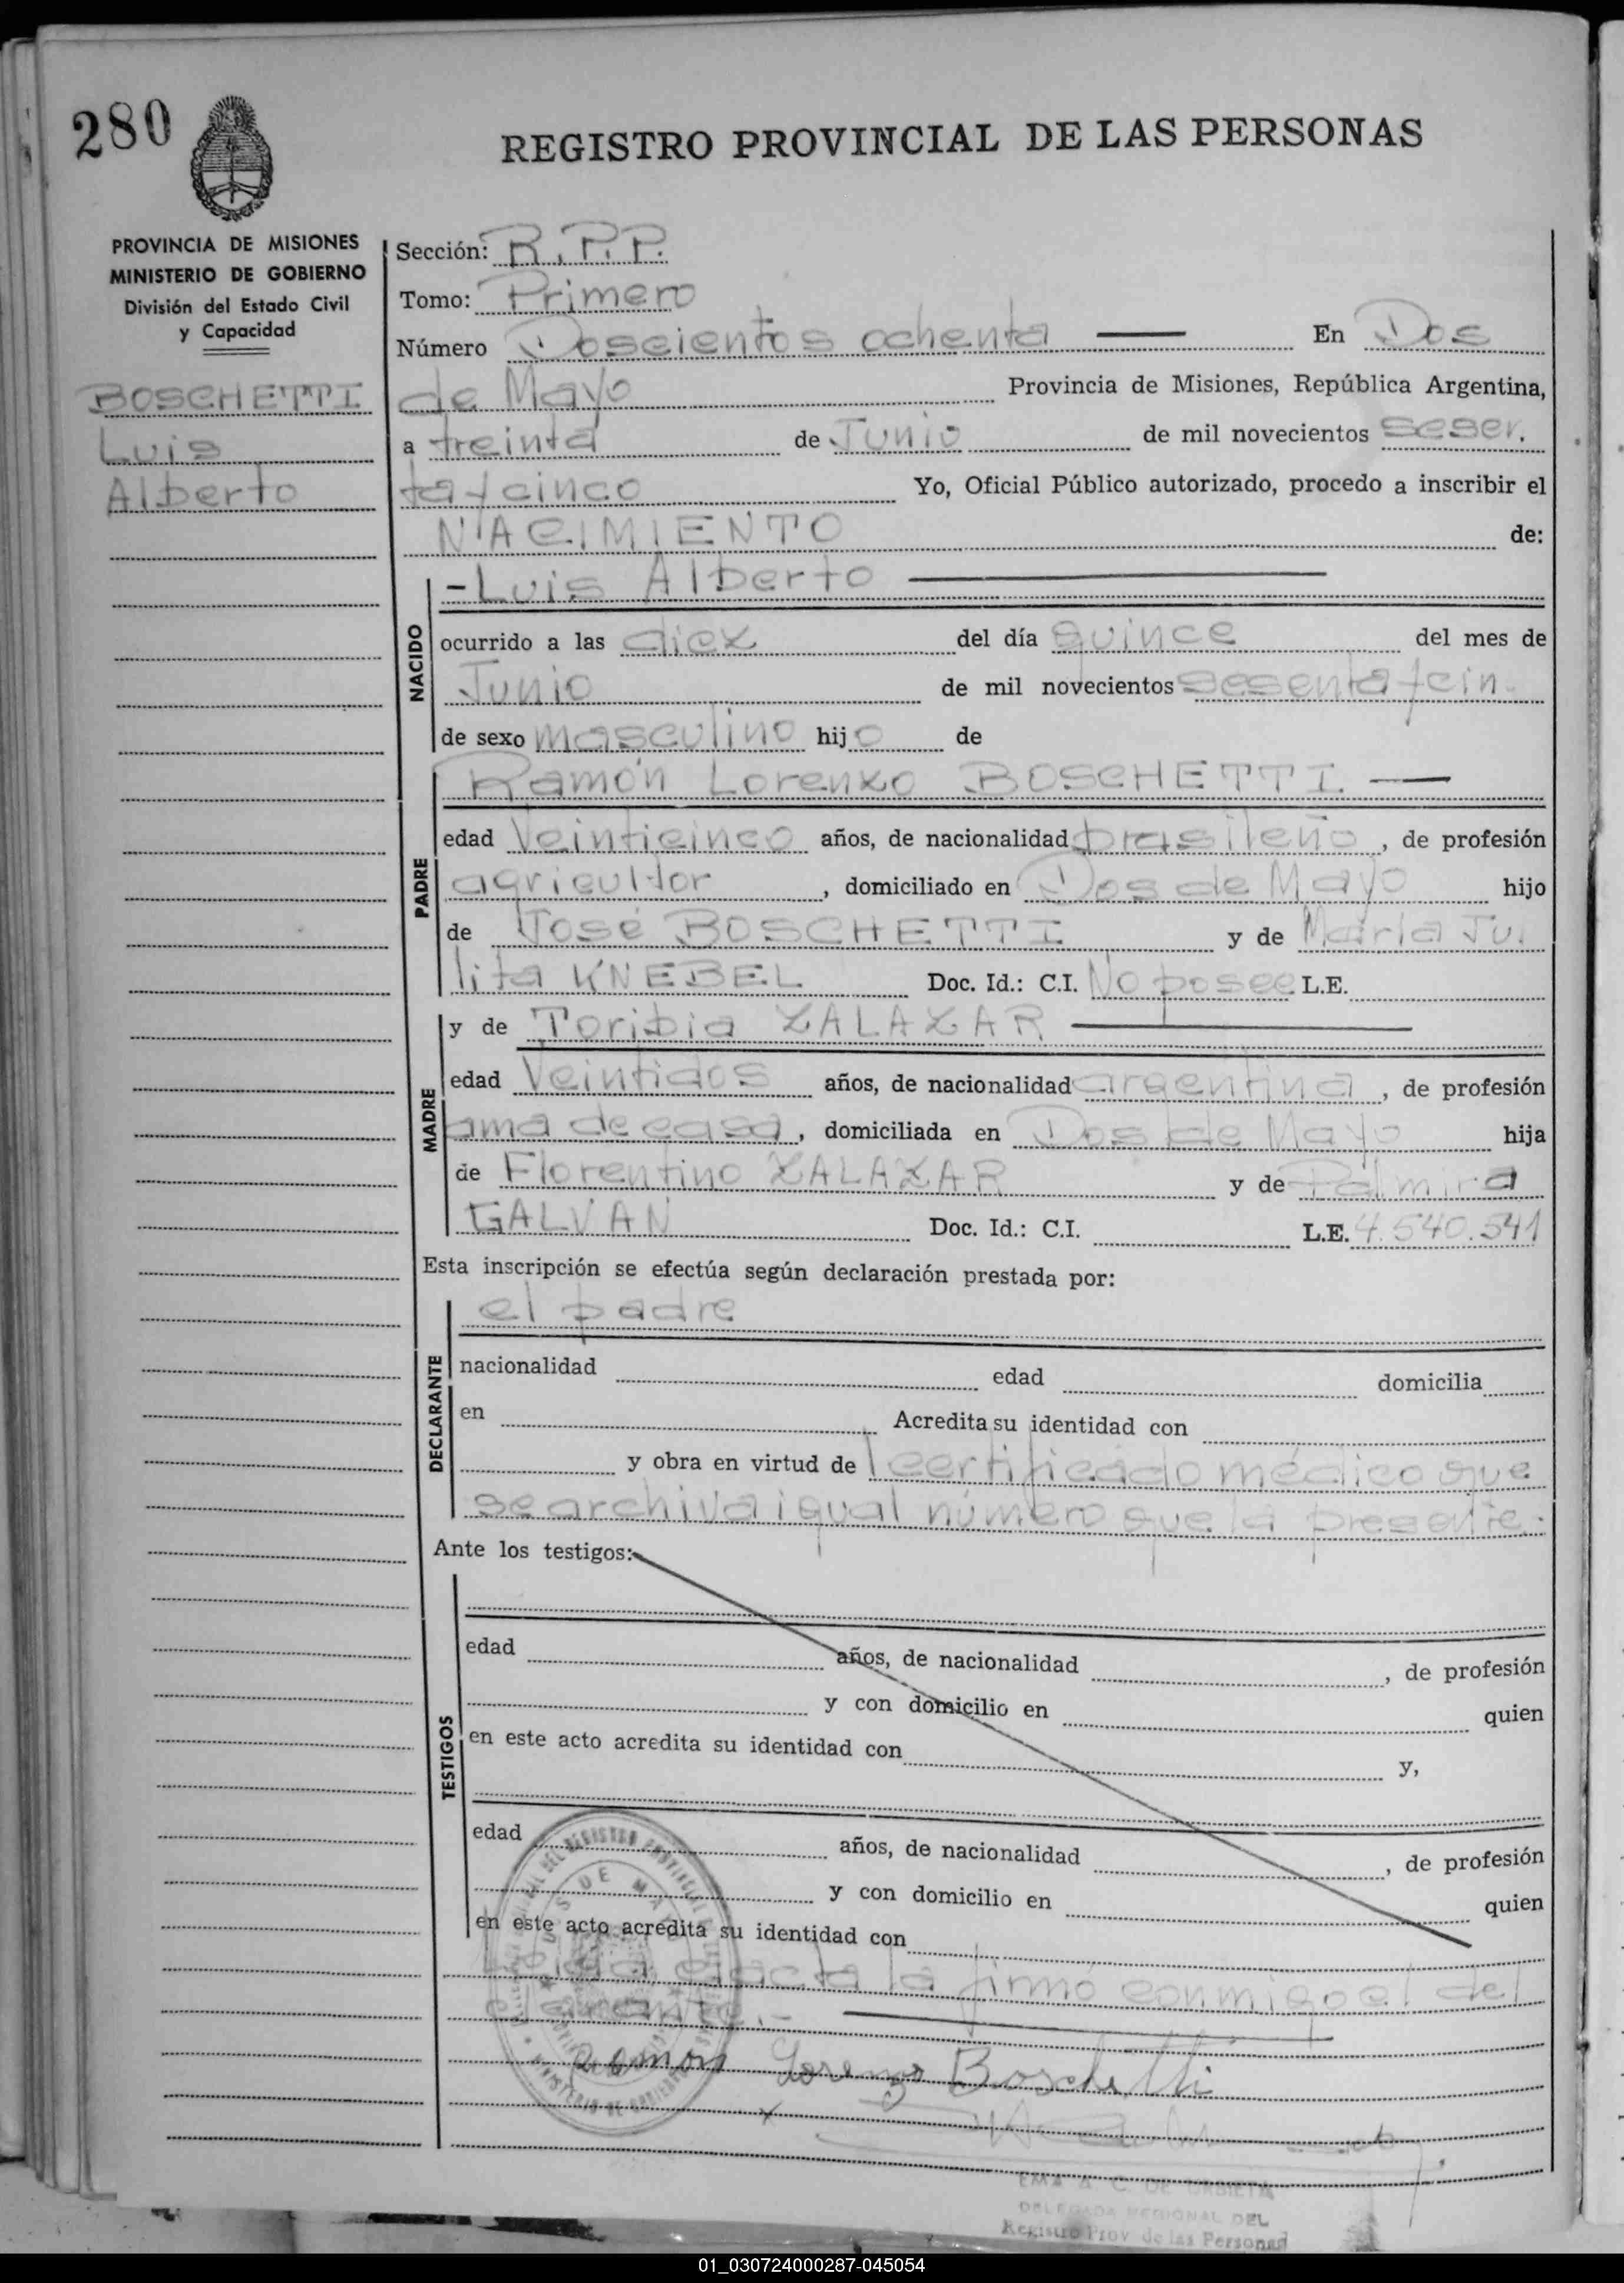 280
REGISTRO PROVINCIAL DE LAS PERSONAS
PROVINCIA DE MISIONES
MINISTERIO DE GOBIERNO
División del Estado Civil
y Capacidad
BOSCHETTI
Luis
Alberto
Sección: R.P.P.
Tomo: Primero
Número Doscientos ochenta — En Dos
de Mayo Provincia de Misiones, República Argentina,
a treinta de Junio de mil novecientos sesen.
ta y cinco Yo, Oficial Público autorizado, procedo a inscribir el
NACIMIENTO de:
NACIDO
- Luis Alberto —
ocurrido a las diez del día quince del mes de
Junio de mil novecientos sesenta y cin.
de sexo masculino hijo de
PADRE
Ramón Lorenzo BOSCHETTI. —
edad Veinticinco años, de nacionalidad brasileño, de profesión
agricultor, domiciliado en Dos de Mayo hijo
de José BOSCHETTI y de María Ju.
lita KNEBEL Doc. Id.: C.I. No posee L.E.
MADRE
y de Toribia ZALAZAR —
edad Veintidos años, de nacionalidad argentina, de profesión
ama de casa, domiciliada en Dos de Mayo hija
de Florentino ZALAZAR y de Palmira
GALVAN Doc. Id.: C.I. L.E. 4.540.541
Esta inscripción se efectúa según declaración prestada por:
DECLARANTE
el padre
nacionalidad edad domicilia
en Acredita su identidad con
y obra en virtud de certificado médico que
se archiva igual número que la presente.
Ante los testigos:
TESTIGOS
edad años, de nacionalidad , de profesión
y con domicilio en quien
en este acto acredita su identidad con y,
edad años, de nacionalidad , de profesión
y con domicilio en quien
en este acto acredita su identidad con
Leida el acta la firmó conmigo el de
clarante.-
Ramon Lorenzo Boschetti
EMA A. C. DE URBIETA
DELEGADA REGIONAL DEL
Registro Prov de las Personas
01_030724000287-045054